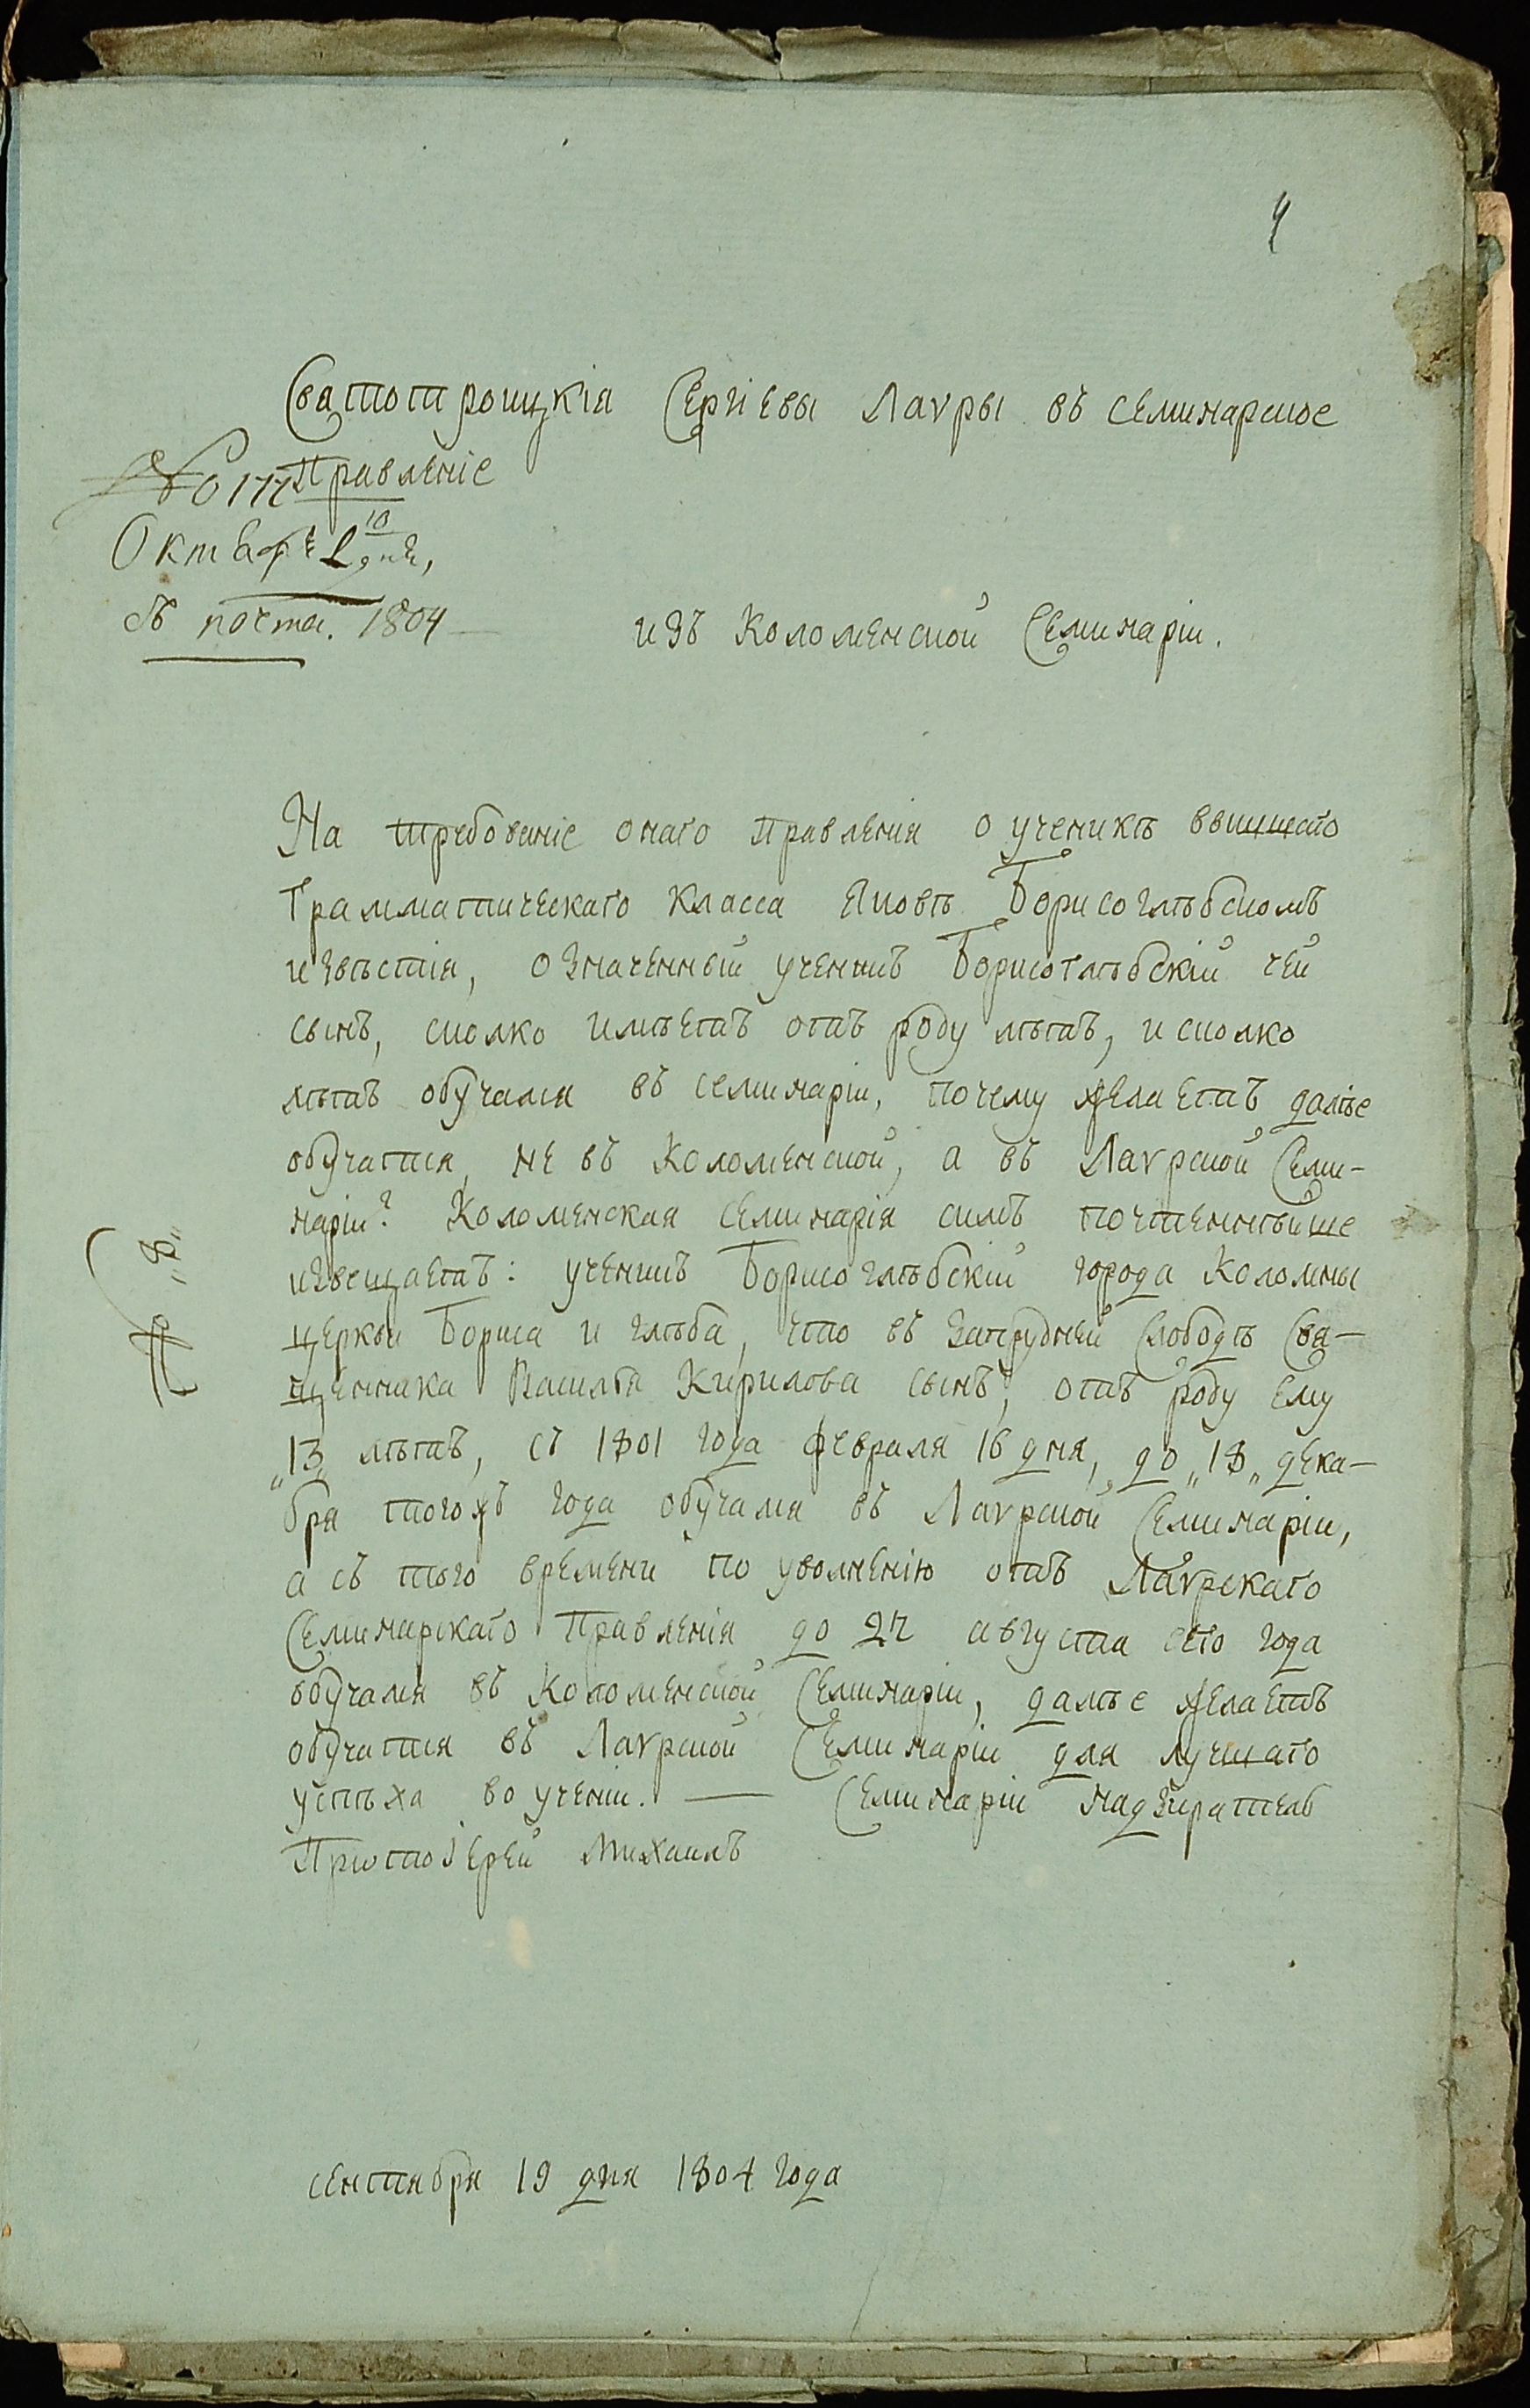 4
Святотроицкія Сергіевы Лаvры въ семинарское
правленіе
№ 177
Октября
съ почты. 1804
изъ Коломенской Семинаріи.
На требованіе онаго правленія о ученикѣ высшаго
грамматическаго класса Яковѣ Борисоглѣбскомъ
извѣстія, означенный ученикъ Борисоглѣбскій чей
сынъ, сколко имѣетъ отъ роду лѣтъ, и сколко
лѣтъ обучался въ семинаріи, почему желаетъ далѣе
обучатся, не въ Коломенской, а въ Лаvрской Семи-
наріи? Коломенская семинарія симъ почтеннѣйше
извещаетъ: ученикъ Борисоглѣбскій города Коломны
церкви Бориса и глѣба, что въ Запрудней слободѣ Свя-
щенника Василья Кирилова сынъ, отъ роду ему
„13„ лѣтъ, съ 1801 года февраля 16 дня, до „18„ дека-
бря тогожъ года обучался въ Лаvрской Семинаріи,
а съ того времени по уволненію отъ Лаvрскаго
Семинарскаго правленія до 27 августа сего года
обучался въ Коломенской Семинаріи, далѣе желаетъ
обучатся въ Лаvрской Семинаріи для лучшаго
успѣха во ученіи. — Семинаріи надзиратель
Протоіерей Михаилъ
„8„
сентября 19 дня 1804 года